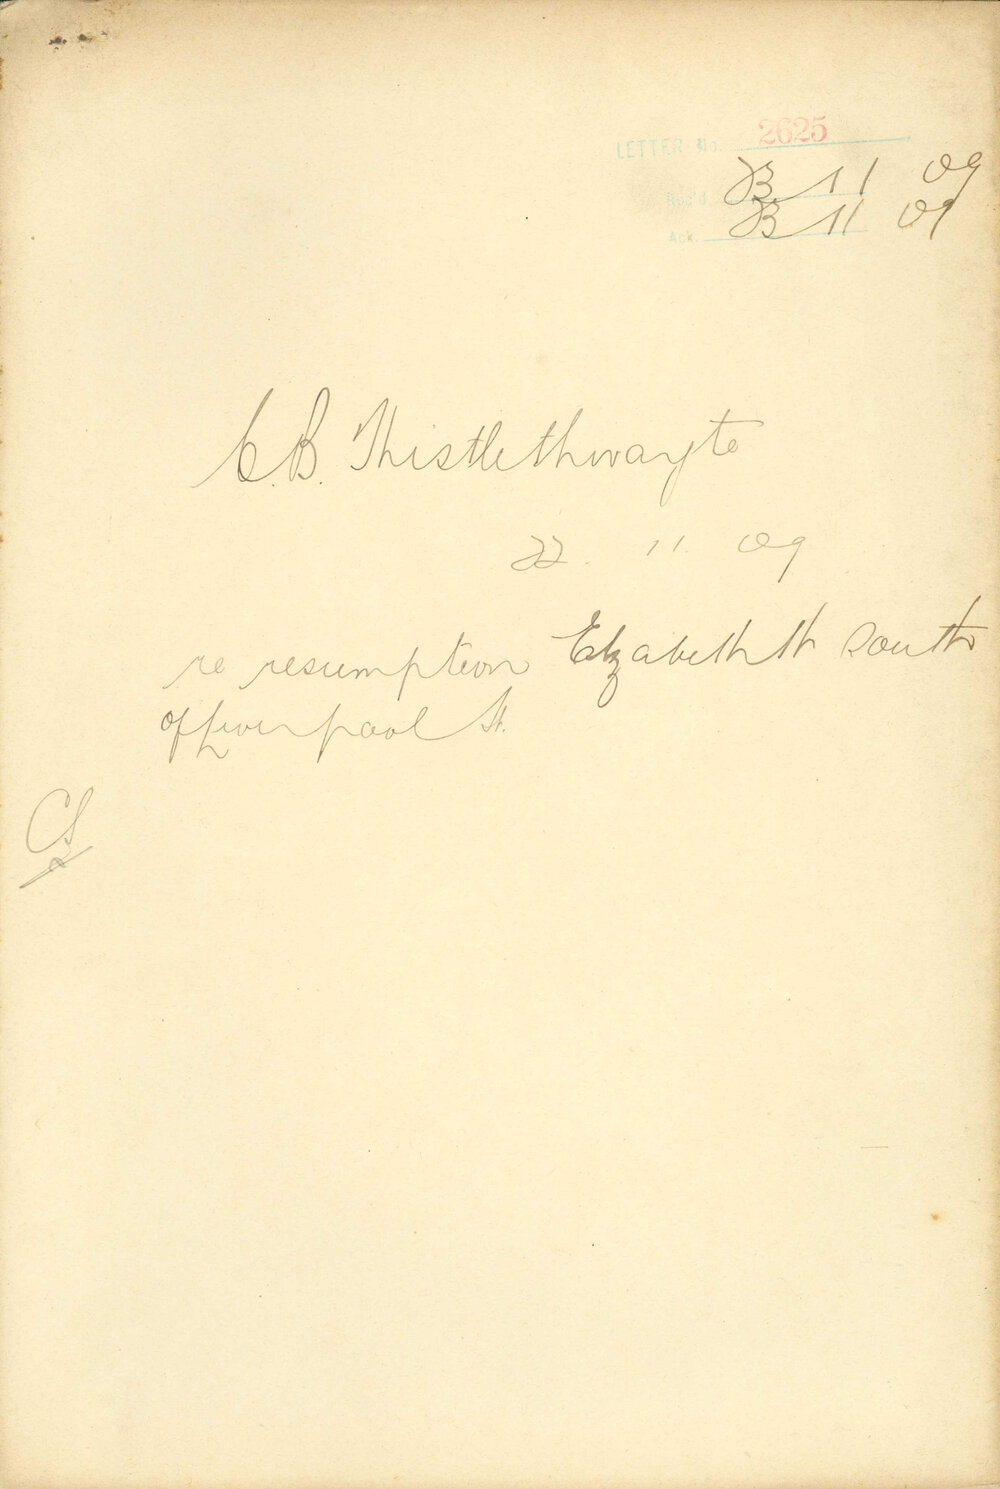 LETTER No. 2625
Rec'd. 23 11 09
Ack. 23 11 09
C.B. Thistlethwayte
22. 11. 09
re resumption Elizabeth St South
of Liverpool St.